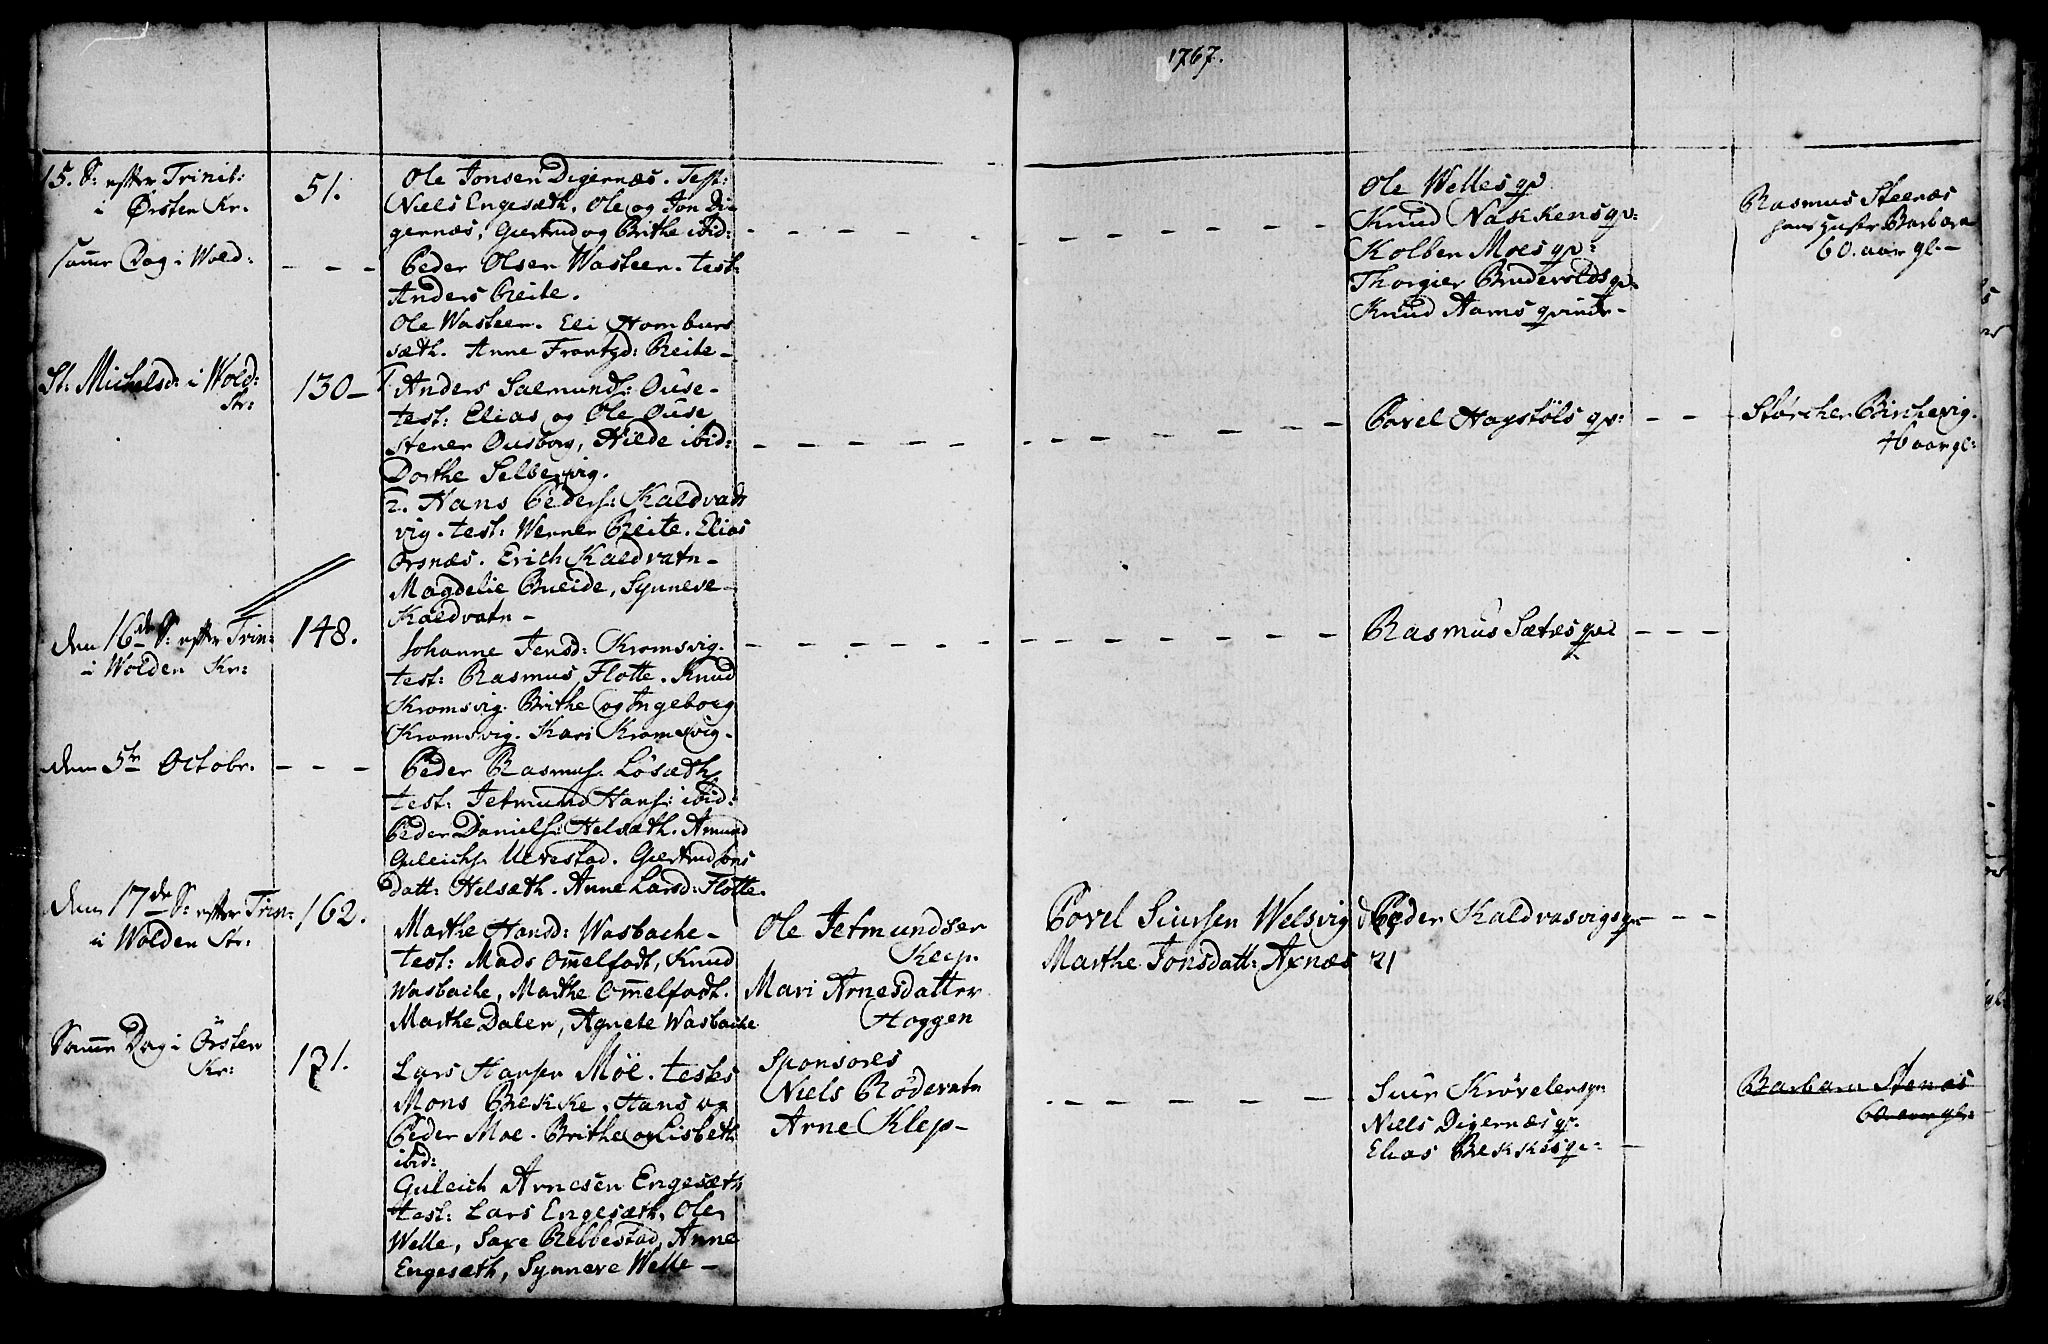 1767.
15. S: efter Trinit:
i Ørsten Kr.
51.
Ole Jonsen Digernæs. Test:
Niels Engesæth, Ole og Jon Di-
gernæs, Giertrud og Brithe ibid:
Ole Welles qv
Knud Nakkens qv:
Kolben Moes qv:
Thorgier Brudevolds qv.
Knud Aams qvinde-
Rasmus Steenæs
hans Hustr Barbara
60. aar gl.-
samme Dag i Wold:
Peder Olsen Wasteen. test:
Anders Reite.
Ole Wasteen. Eli Hombers
sæth. Anne Frantzd: Reite-
St: Michelsd: i Wold:
Kr:
130-
1. Anders Salmunds: Ouse-
test: Elias og Ole Ouse
Stener Ousborg, Hilde ibid:
Dorthe Selbervig.
2. Hans Peders: Kaldvads
vig. test: Werner Reite. Elias
Orsnæs. Erich Kaldvatn-
Magdelie Breide, Synneve-
Kaldvatn-
Povel Haystöls qv:
Størcher Birchevig.
46 aar gl:
den 16de S: efter Trin:
i Wolden Kr:
148.
Johanne Jensd: Kromsvig.
test: Rasmus Flotte. Knud
Kromsvig. Brithe og Ingeborg
Kromsvig. Kari Kromsvig-
Rasmus Sætres qv:
den 5te Octobr.
Peder Rasmus. Løsæth
test: Jetmund Hans: ibid:
Peder Daniels: Helsæth. Amund
Guleichs. Ulvestad. Giertrud Jons
datt: Helsæth. Anne Larsd: Flotte.
den 17de S: efter Trin:
i Wolden Kr:
162.
Marthe Hansd: Wasbache-
test: Mads Ommelfodt, Knud
Wasbache, Marthe Ommelfodt.
Marthe Dalen, Agnete Wasbache
Ole Jetmundsen
Klep.
Mari Arnesdatter
Haggen
Sponsores
Niels Rödevatn
Arne Klep-
Povel Siursen Welsvig
Marthe Jonsdatt: Axnæs 21
Peder Kaldvasvigs qv
Samme Dag i Örsten
Kr:
171.
Lars Hansen Möe. testes
Mons Brekke. Hans og
Peder Moe. Brithe og Lisbeth
ibid:
Guleich Arnesen Engesæth
test: Lars Engesæth, Ole
Welle, Saxe Rebbestad, Anne
Engesæth, Synneve Welle-
Siur Krövelens qv
Niels Digernæs qv.
Elias Brekkes qv:
Barbara Stenæs
60 aar gl: